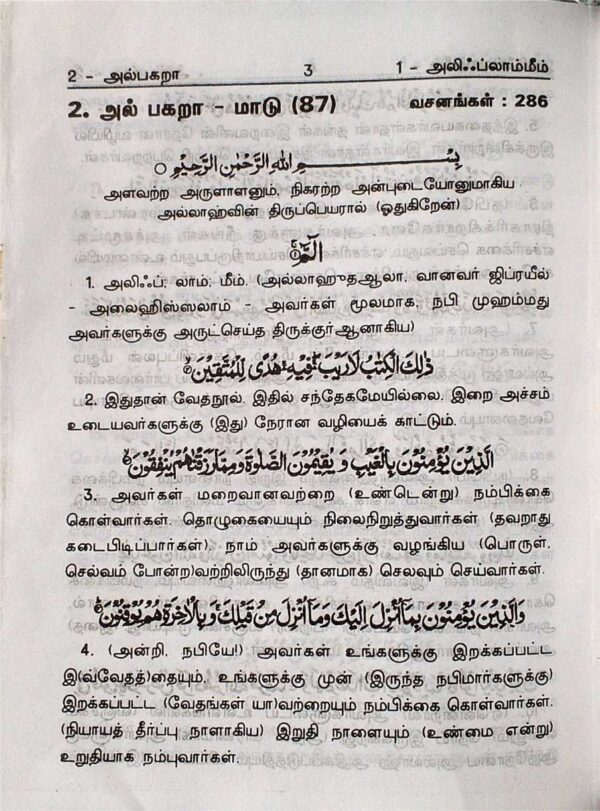 2 - அல்பகறா 3 1 - அலிஃப்லாம்மீம்
2. அல் பகறா - மாடு (87) வசனங்கள் : 286
بِسْمِ اللهِ الرَّحْمٰنِ الرَّحِيْمِ
அளவற்ற அருளாளனும், நிகரற்ற அன்புடையோனுமாகிய
அல்லாஹ்வின் திருப்பெயரால் (ஓதுகிறேன்)
الٓمّٓ
1. அலிஃப்; லாம்; மீம். (அல்லாஹுதஆலா, வானவர் ஜிப்ரயீல்
- அலைஹிஸ்ஸலாம் - அவர்கள் மூலமாக, நபி முஹம்மது
அவர்களுக்கு அருட்செய்த திருக்குர்ஆனாகிய)
ذٰلِكَ الْكِتٰبُ لَا رَيْبَ ۛ فِيْهِ ۛ هُدًى لِّلْمُتَّقِيْنَ
2. இதுதான் வேதநூல். இதில் சந்தேகமேயில்லை. இறை அச்சம்
உடையவர்களுக்கு (இது) நேரான வழியைக் காட்டும்.
الَّذِيْنَ يُؤْمِنُوْنَ بِالْغَيْبِ وَيُقِيْمُوْنَ الصَّلٰوةَ وَمِمَّا رَزَقْنٰهُمْ يُنْفِقُوْنَ
3. அவர்கள் மறைவானவற்றை (உண்டென்று) நம்பிக்கை
கொள்வார்கள். தொழுகையையும் நிலைநிறுத்துவார்கள் (தவறாது
கடைபிடிப்பார்கள்). நாம் அவர்களுக்கு வழங்கிய (பொருள்,
செல்வம் போன்ற)வற்றிலிருந்து (தானமாக) செலவும் செய்வார்கள்.
وَالَّذِيْنَ يُؤْمِنُوْنَ بِمَا اُنْزِلَ اِلَيْكَ وَمَا اُنْزِلَ مِنْ قَبْلِكَ ۚ وَبِالْاٰخِرَةِ هُمْ يُوْقِنُوْنَ
4. (அன்றி, நபியே!) அவர்கள் உங்களுக்கு இறக்கப்பட்ட
இ(வ்வேதத்)தையும், உங்களுக்கு முன் (இருந்த நபிமார்களுக்கு)
இறக்கப்பட்ட (வேதங்கள் யா)வற்றையும் நம்பிக்கை கொள்வார்கள்.
(நியாயத் தீர்ப்பு நாளாகிய) இறுதி நாளையும் (உண்மை என்று)
உறுதியாக நம்புவார்கள்.